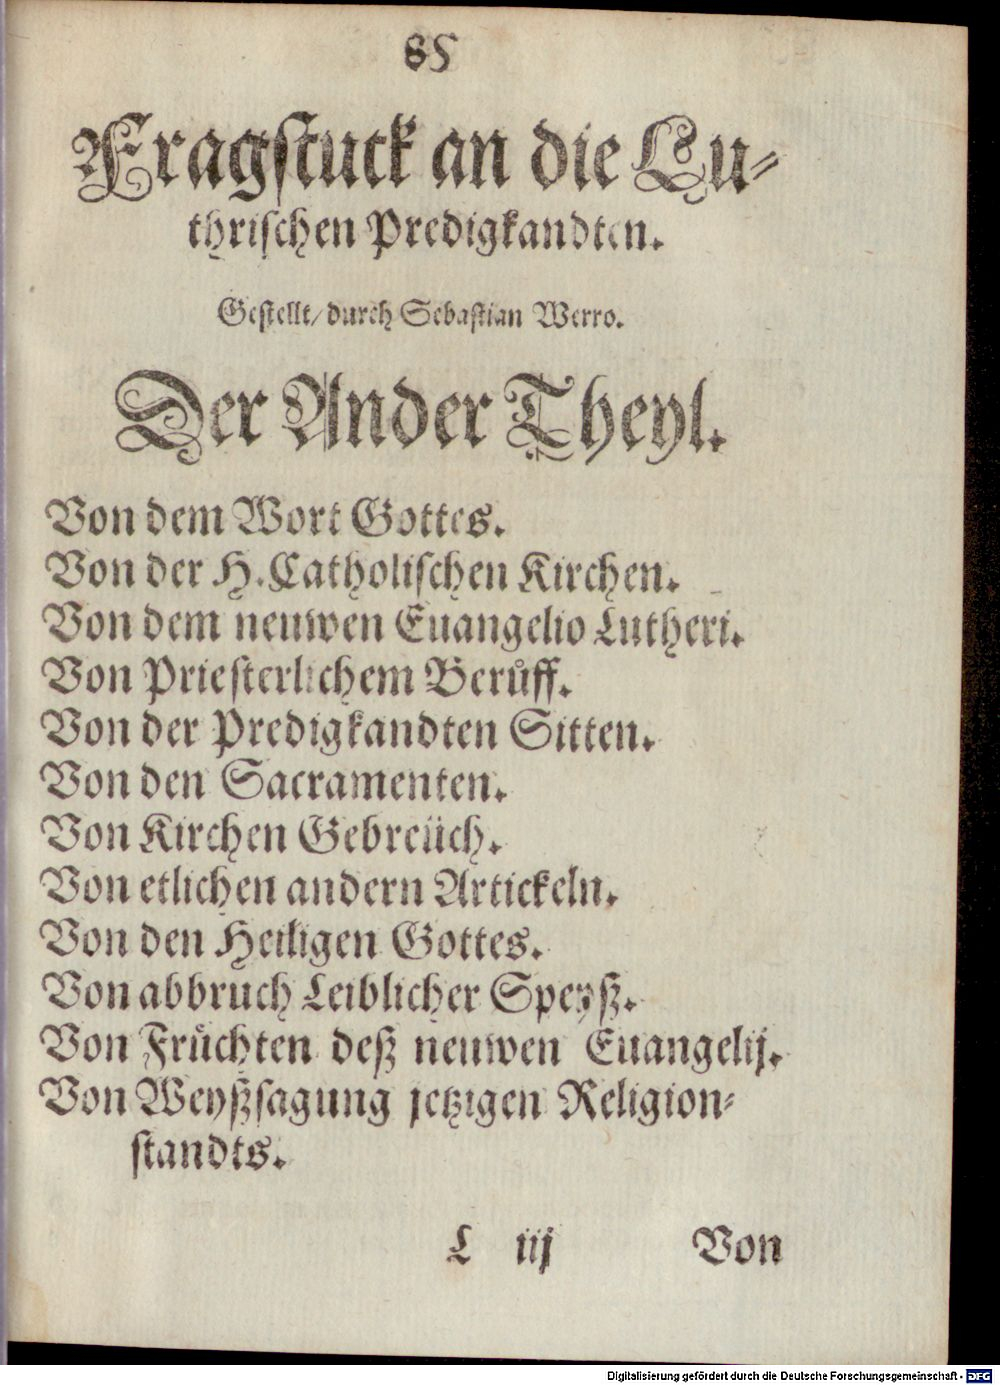 85
Fragstuck an die Lu-
thrischen Predigkandten.
Gestellt/ durch Sebastian Werro.
Der Ander Theyl.
Von dem Wort Gottes.
Von der H. Catholischen Kirchen.
Von dem neuwen Euangelio Lutheri.
Von Priesterlichem Berůff.
Von der Predigkandten Sitten.
Von den Sacramenten.
Von Kirchen Gebreüch.
Von etlichen andern Artickeln.
Von den Heiligen Gottes.
Von abbruch Leiblicher Speyß.
Von Früchten deß neuwen Euangelij.
Von Weyßsagung jetzigen Religion-
standts.
L iij Von
Digitalisierung gefördert durch die Deutsche Forschungsgemeinschaft - DFG